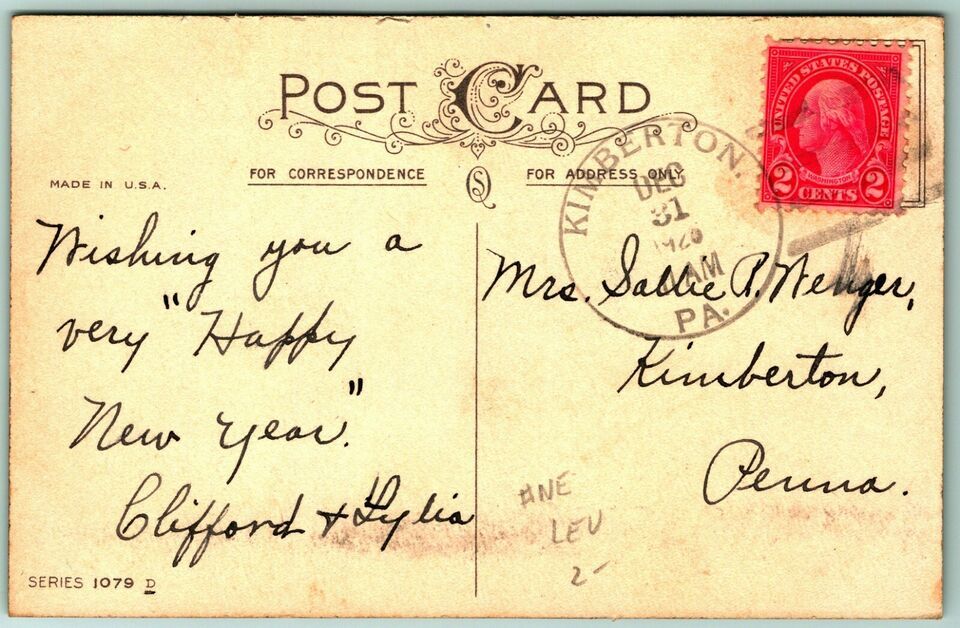 POST CARD
FOR CORRESPONDENCE
FOR ADDRESS ONLY
MADE IN U.S.A.
UNITED STATES POSTAGE
WASHINGTON
2 CENTS 2
KIMBERTON.
DEC
31
1926
AM
PA.
Wishing you a
very "Happy
New Year."
Clifford & Lylia
Mrs. Sallie P. Wenger,
Kimberton,
Penna.
SERIES 1079 D
LEU
2-